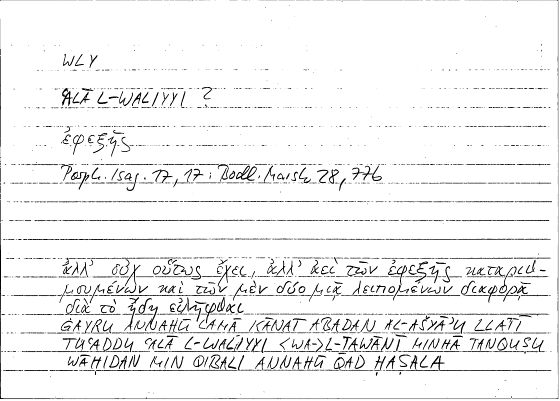 WLY
ʿALĀ L-WALIYYI ?
ἐφεξῆς
Porph. Isag. 17,17 : Bodl. Marsh 28, 77b
ἀλλ' οὐχ οὕτως ἔχει, ἀλλ' ἀεὶ τῶν ἐφεξῆς καταριθ-
μουμένων καὶ τῶν μὲν δύο μιᾷ λειπομένων διαφορᾷ
διὰ τὸ ἤδη εἰλῆφθαι
ĠAYRU ANNAHŪ LAMĀ KĀNAT ABADAN AL-AŠYĀʾU LLATĪ
TUʿADDU ʿALĀ L-WALIYYI <WA->L-TAWĀNĪ MINHĀ TANQUṢU
WĀḤIDAN MIN QIBALI ANNAHŪ QAD ḤAṢALA